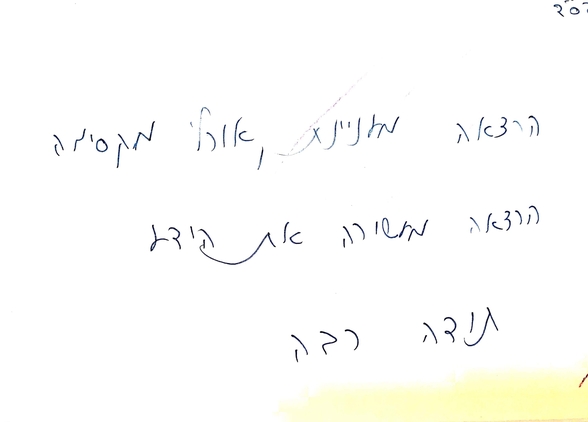 הרצאה מעניינת, אורלי מקסימה
הרצאה מעשירה את הידע
תודה רבה